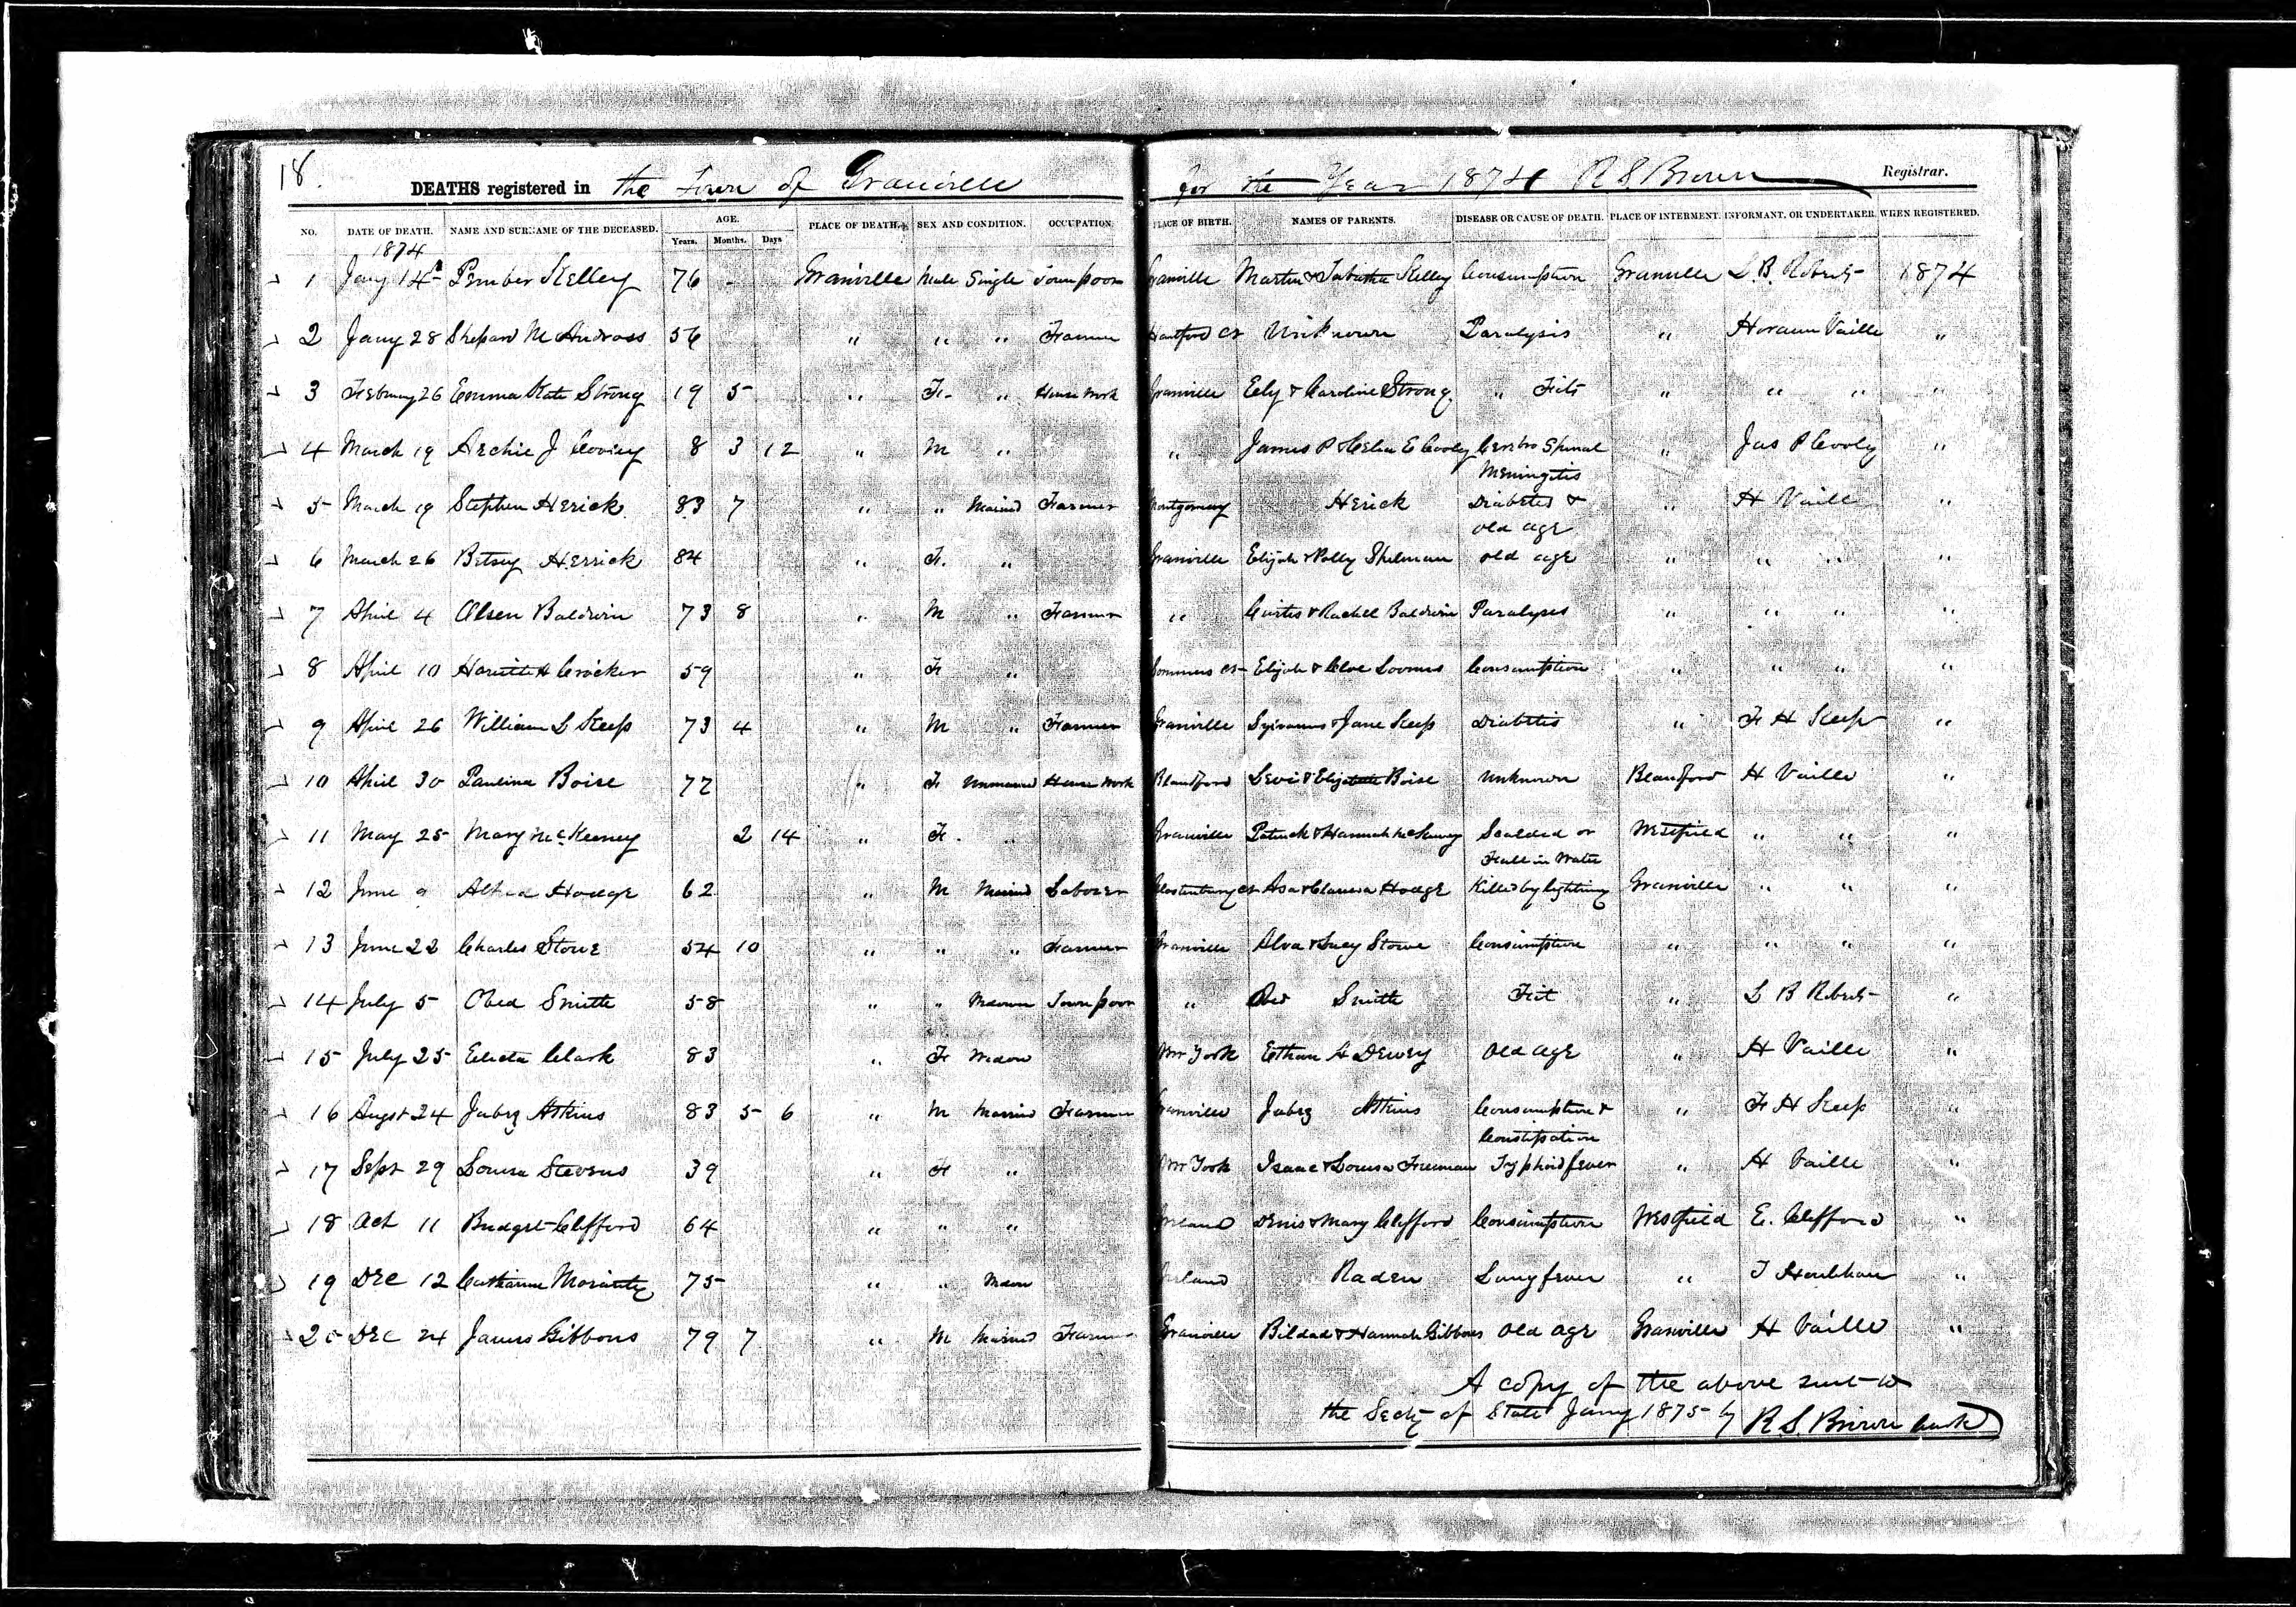 18.
DEATHS registered in the Town of Granville for the Year 1874 R S Brown Registrar.
NO. DATE OF DEATH. NAME AND SURNAME OF THE DECEASED. AGE. Years. Months. Days PLACE OF DEATH. SEX AND CONDITION. OCCUPATION. PLACE OF BIRTH. NAMES OF PARENTS. DISEASE OR CAUSE OF DEATH. PLACE OF INTERMENT. INFORMANT, OR UNDERTAKER. WHEN REGISTERED.
1874
1 Jany 14 Pember Kelley 76 - Granville Male Single Town poor Granville Martin & Tabatha Kelley Consumption Granville L. B. Roberts 1874
2 Jany 28 Shepard M Andross 56 " " " Farmer Hartford Ct Unknown Paralysis " Horann Vaille "
3 February 26 Emma Kate Strong 19 5 " F. " House Work Granville Ely & Caroline Strong " Fits " " " "
4 March 19 Archie J 8 3 12 " M " " James P & Helen E Cooley Cerebro Spinal " Jas P Cooley "
Meningitis
5 March 19 Stephen Herick 83 7 " " Married Farmer Montgomery Herick Diabetes & " H Vaille "
old age
6 March 26 Betsey Herrick 84 " F. " Granville Elijah & Polly Spelman old age " " " "
7 April 4 Olsen Baldwin 73 8 " M " Farmer " Curtis & Rachel Baldwin Paralyses " " " "
8 April 10 Hariett H Crocker 59 " F " Sommers Ct Elijah & Cloe Loomis Consumption " " " "
9 April 26 William L Keep 73 4 " M " Farmer Granville Sylvanus & Jane Keep Diabetis " F H Keep "
10 April 30 Paulina Boise 77 " F Unmarried House Work Blandford Levi & Elizabeth Boise Unknown Blandford H Vaille "
11 May 25 Mary McKeeney 2 14 " F. " Granville Patrick & Hannah McKeeney Scalded or Westfield " " "
Fall in Water
12 June 9 Alfred Hodge 62 " M Married Laborer Glastenbury Ct Asa & Clarissa Hodge Killed by lightning Granville " " "
13 June 22 Charles Stowe 54 10 " " " Farmer Granville Alva & Lucy Stowe Consumption " " " "
14 July 5 Obed Smith 58 " " Town poor " Obed Smith Fit " L B Roberts "
15 July 25 Electa Clark 83 " F Widow New York Ethan A Dewey Old age " H Vaille "
16 Augst 24 Jabez Atkins 83 5 6 " M Married Farmer Granville Jabez Atkins Consumption & " F H Keep "
Constipation
17 Sept 29 Louisa Stevens 39 " F " New York Isaac & Louisa Freeman Typhoid fever " H Vaille "
18 Oct 11 Bridget Clifford 64 " " " Ireland Denis & Mary Clifford Consumption Westfield E. Clifford "
19 Dec 12 Catharine Moriarty 75 " " Ireland Raden Lung fever " T "
20 Dec 24 James Gibbons 79 7 " M Married Farmer Granville Bildad & Hannah Gibbons Old age Granville H Vaille "
A copy of the above sent to
the Secty of State Jany 1875 by R S Brown Clerk